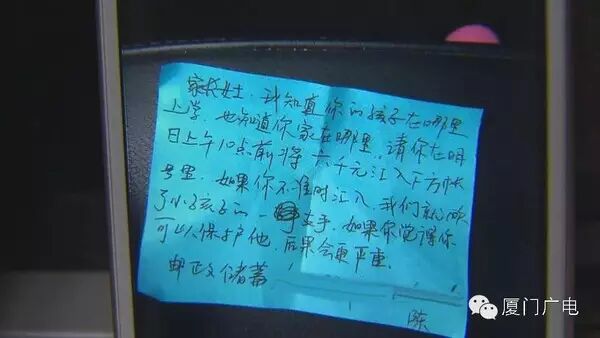 家长女士,我知道你的孩子在哪里
上学,也知道你家在哪里。请你在明
日上午10点前将六千元汇入下方帐
号里,如果你不准时汇入,我们就砍
了小孩子的一支手,如果你觉得你
可以保护他,后果会更严重.
邮政储蓄
陈
厦门广电